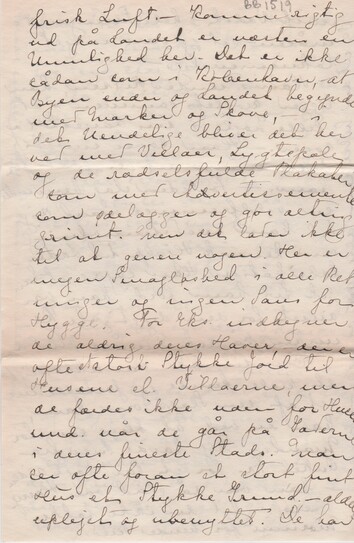 BB1519
frisk Luft. – Komme rigtig
ud på Landet er næsten en
Umulighed her. Det er ikke
sådan som i København, at
Byen ender og Landet begynder
med Marker og Skove, –
det Uendelige bliver det her
ved med Villaer, Lygtepæle
og de rædselsfulde Plakater
som med Advertissementer
som ødelægger og gør alting
grimt. Men det lader ikke
til at genere nogen. Her er
megen Smagløshed i alle Ret
ninger og ingen Sans for
Hygge. For Eks. indhegner
de aldrig deres Haver, der er
ofte et stort Stykke Jord til
Husene el. Villaerne, men
de færdes ikke uden for Huset
und. når de går på Gaderne
i deres fineste Stads. Man
ser ofte foran et stort fint
Hus et Stykke Grund – aldeles
uplejet og ubenyttet. De har